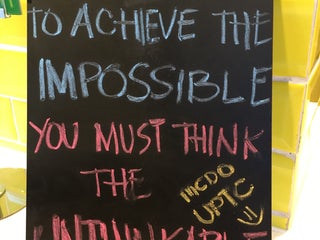 TO ACHIEVE THE
IMPOSSIBLE
YOU MUST THINK
THE
UNTHINKABLE
MCDO
UPTC